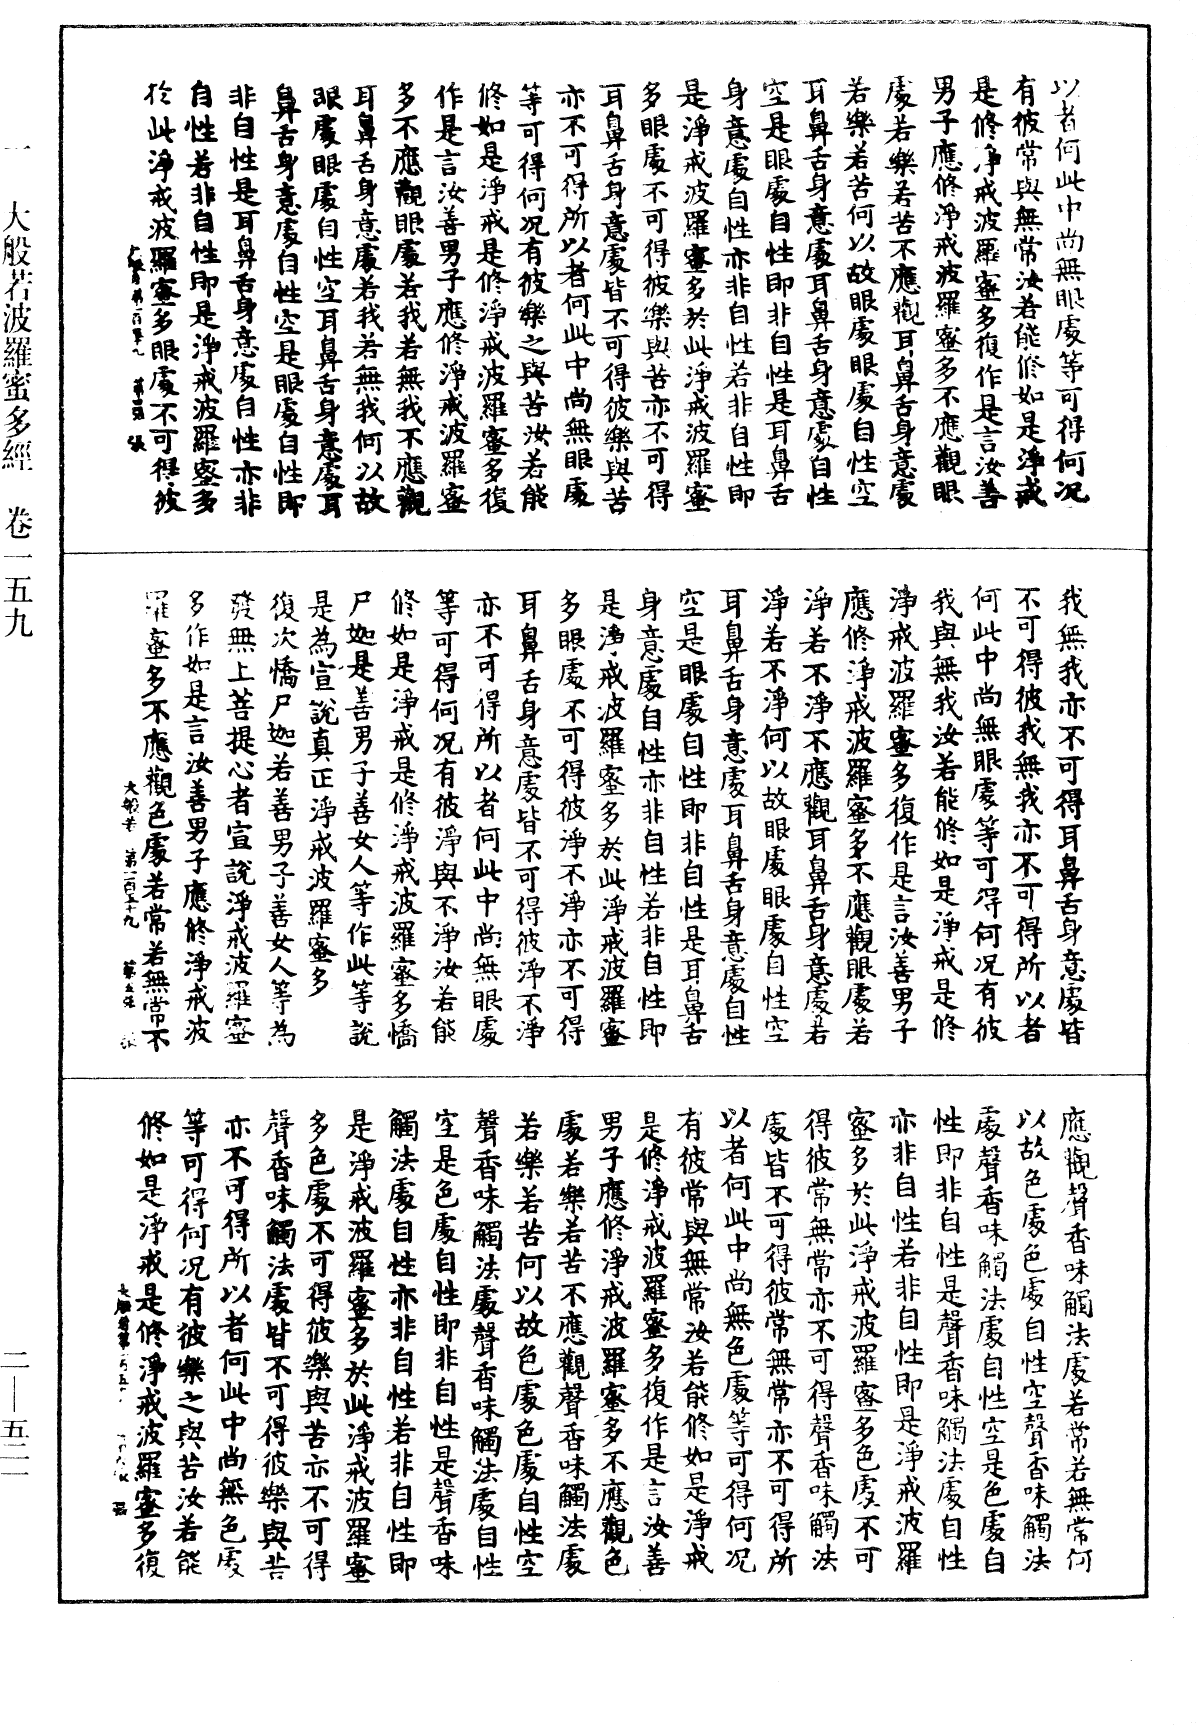 以者何此中尚無眼處等可得何况
有彼常與無常汝若能修如是淨戒
是修淨戒波羅蜜多復作是言汝善
男子應修淨戒波羅蜜多不應觀眼
處若樂若苦不應觀耳鼻舌身意處
若樂若苦何以故眼處眼處自性空
耳鼻舌身意處耳鼻舌身意處自性
空是眼處自性即非自性是耳鼻舌
身意處自性亦非自性若非自性即
是淨戒波羅蜜多於此淨戒波羅蜜
多眼處不可得彼樂與苦亦不可得
耳鼻舌身意處皆不可得彼樂與苦
亦不可得所以者何此中尚無眼處
等可得何况有彼樂之與苦汝若能
修如是淨戒是修淨戒波羅蜜多復
作是言汝善男子應修淨戒波羅蜜
多不應觀眼處若我若無我不應觀
耳鼻舌身意處若我若無我何以故
眼處眼處自性空耳鼻舌身意處耳
鼻舌身意處自性空是眼處自性即
非自性是耳鼻舌身意處自性亦非
自性若非自性即是淨戒波羅蜜多
於此淨戒波羅蜜多眼處不可得彼
我無我亦不可得耳鼻舌身意處皆
不可得彼我無我亦不可得所以者
何此中尚無眼處等可得何况有彼
我與無我汝若能修如是淨戒是修
淨戒波羅蜜多復作是言汝善男子
應修淨戒波羅蜜多不應觀眼處若
淨若不淨不應觀耳鼻舌身意處若
淨若不淨何以故眼處眼處自性空
耳鼻舌身意處耳鼻舌身意處自性
空是眼處自性即非自性是耳鼻舌
身意處自性亦非自性若非自性即
是淨戒波羅蜜多於此淨戒波羅蜜
多眼處不可得彼淨不淨亦不可得
耳鼻舌身意處皆不可得彼淨不淨
亦不可得所以者何此中尚無眼處
等可得何况有彼淨與不淨汝若能
修如是淨戒是修淨戒波羅蜜多憍
尸迦是善男子善女人等作此等說
是為宣說真正淨戒波羅蜜多
復次憍尸迦若善男子善女人等為
發無上菩提心者宣說淨戒波羅蜜
多作如是言汝善男子應修淨戒波
羅蜜多不應觀色處若常若無常不
大般若 第一百五十九
應觀聲香味觸法處若常若無常何
以故色處色處自性空聲香味觸法
處聲香味觸法處自性空是色處自
性即非自性是聲香味觸法處自性
亦非自性若非自性即是淨戒波羅
蜜多於此淨戒波羅蜜多色處不可
得彼常無常亦不可得聲香味觸法
處皆不可得彼常無常亦不可得所
以者何此中尚無色處等可得何况
有彼常與無常汝若能修如是淨戒
是修淨戒波羅蜜多復作是言汝善
男子應修淨戒波羅蜜多不應觀色
處若樂若苦不應觀聲香味觸法處
若樂若苦何以故色處色處自性空
聲香味觸法處聲香味觸法處自性
空是色處自性即非自性是聲香味
觸法處自性亦非自性若非自性即
是淨戒波羅蜜多於此淨戒波羅蜜
多色處不可得彼樂與苦亦不可得
聲香味觸法處皆不可得彼樂與苦
亦不可得所以者何此中尚無色處
等可得何况有彼樂之與苦汝若能
修如是淨戒是修淨戒波羅蜜多復
一 大般若波羅蜜多經 卷一五九
二—五二一